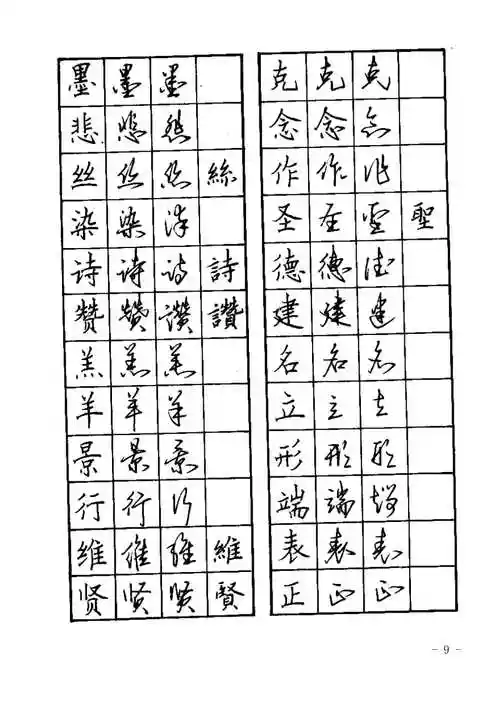 墨 墨 墨
悲 悲 悲
丝 丝 丝 絲
染 染 染
诗 诗 诗 詩
赞 赞 讚 讚
羔 羔 羔
羊 羊 羊
景 景 景
行 行 行
维 维 维 維
贤 贤 贤 賢
克 克 克
念 念 念
作 作 作
圣 圣 聖 聖
德 德 德
建 建 建
名 名 名
立 立 立
形 形 形
端 端 端
表 表 表
正 正 正
- 9 -